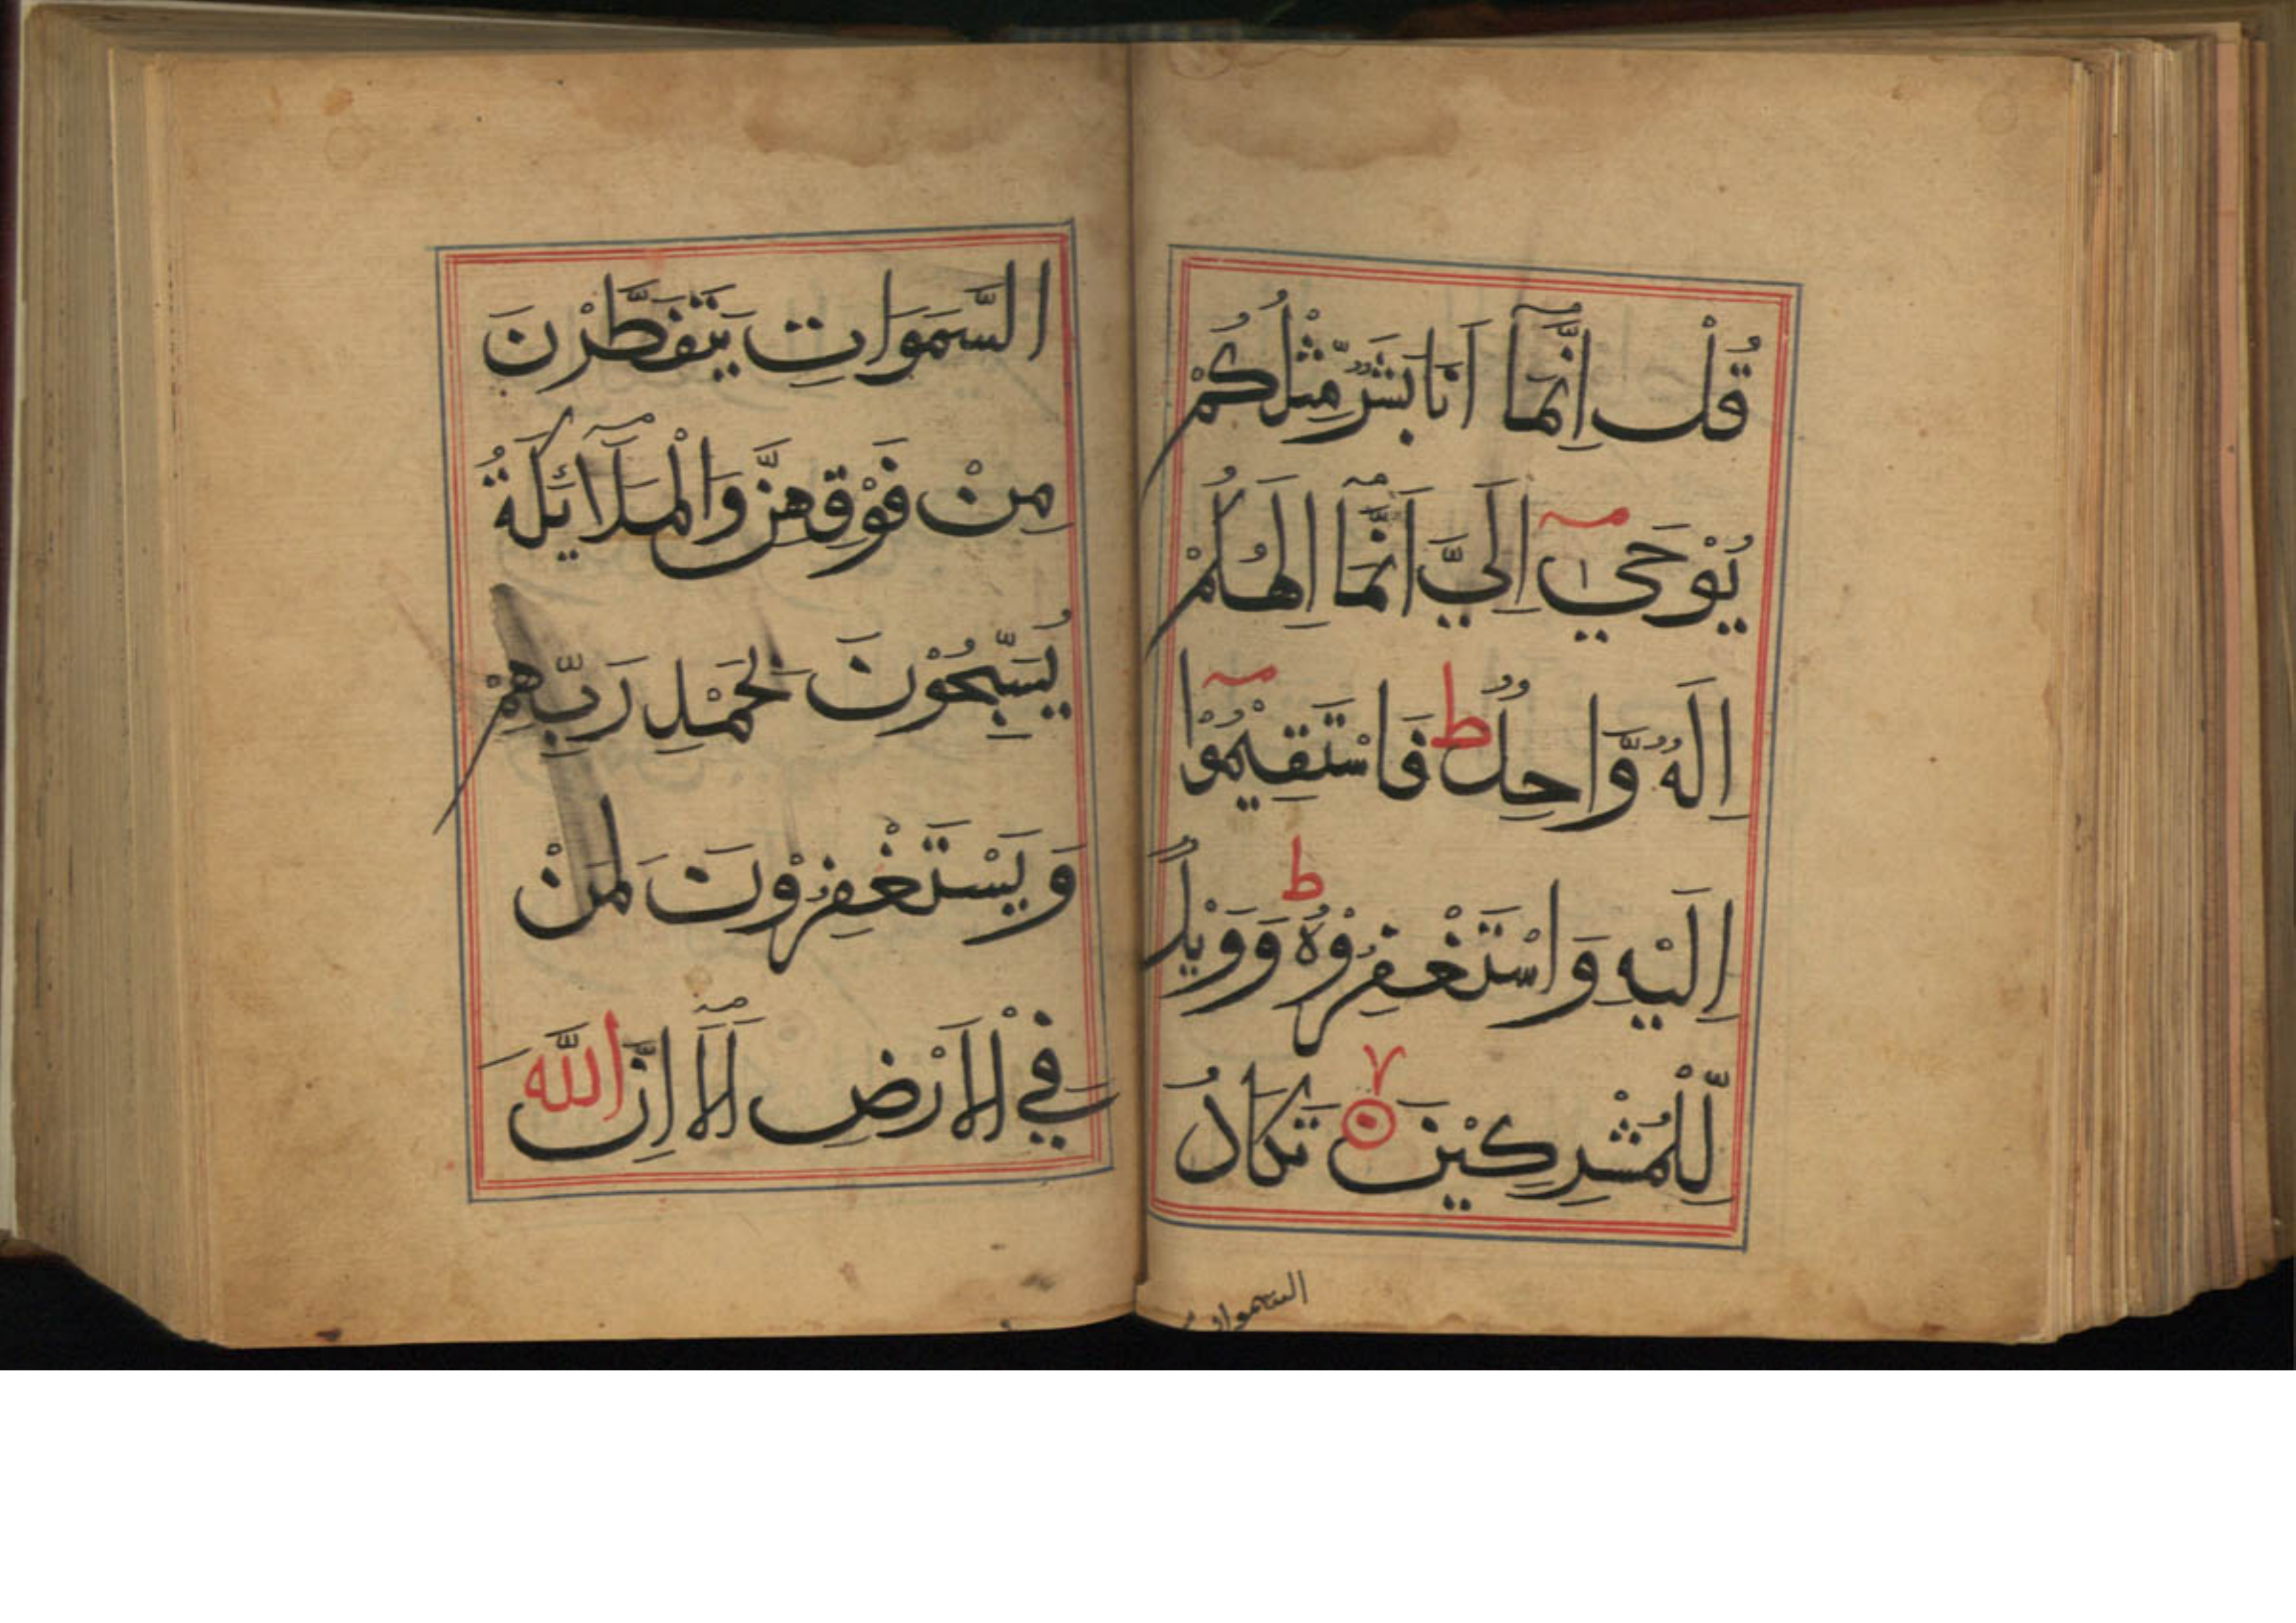 قُلْ اِنَّمَآ اَنَا بَشَرٌ مِّثْلُكُمْ
يُوْحٰىٓ اِلَيَّ اَنَّمَآ اِلٰهُكُمْ
اِلٰهٌ وَّاحِدٌ ط فَاسْتَقِيْمُوْٓا
اِلَيْهِ وَاسْتَغْفِرُوْهُ ط وَوَيْلٌ
لِّلْمُشْرِكِيْنَ ۷ تَكَادُ
السموات
السَّمَوَاتِ يَتَفَطَّرْنَ
مِنْ فَوْقِهِنَّ وَالْمَلَآئِكَةُ
يُسَبِّحُوْنَ بِحَمْدِ رَبِّهِمْ
وَيَسْتَغْفِرُوْنَ لِمَنْ
فِي الْاَرْضِ اَلَآ اِنَّ اللّٰهَ